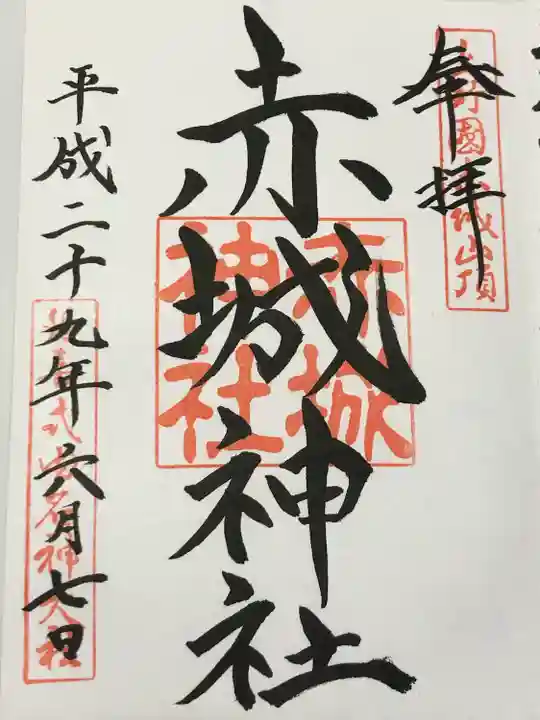 奉拝
上野國赤城山頂
赤城神社
赤城神社
平成二十九年六月七日
名神大社